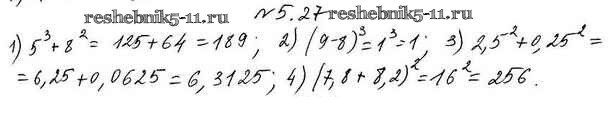 reshebnik5-11.ru
reshebnik5-11.ru
№5.27
1) 5³+8²= 125+64=189; 2) (9-8)³=1³=1; 3) 2,5²+0,25²=
=6,25+0,0625=6,3125; 4) (7,8+8,2)²=16²=256.